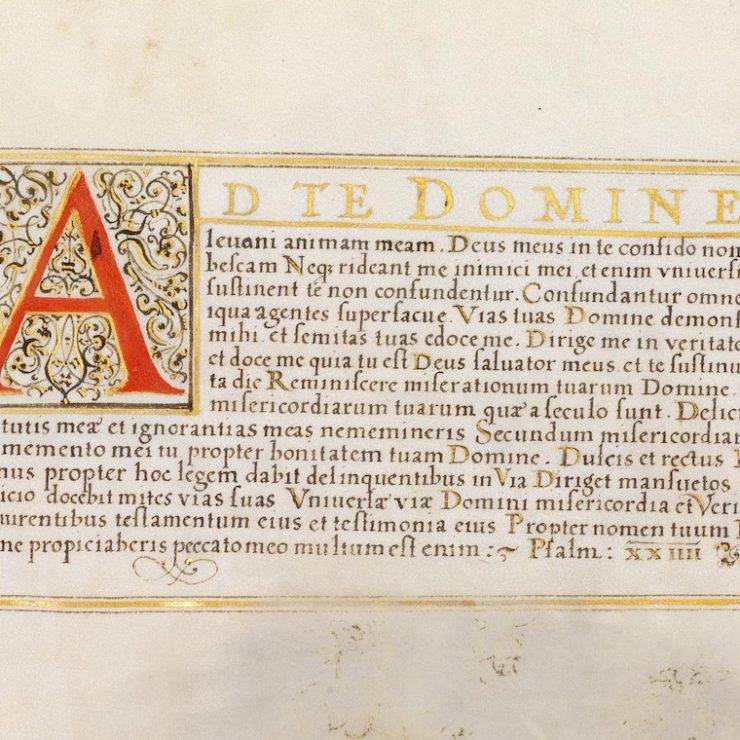 AD TE DOMINE
leuaui animam meam. Deus meus in te confido non
bescam Neq; rideant me inimici mei, et enim vniuersi
sustinent te non confundentur. Confundantur omne
iqua agentes superfacue. Vias tuas Domine demons
mihi et semitas tuas edoce me. Dirige me in veritate
et doce me quia tu est Deus saluator meus, et te sustinu
ta die Reminiscere miserationum tuarum Domine.
misericordiarum tuarum quæ a seculo sunt. Delict
tutis meæ et ignorantias meas nememineris Secundum misericordian
memento mei tu propter bonitatem tuam Domine. Dulcis et rectus
nus propter hoc legem dabit delinquentibus in Via Diriget mansuetos
icio docebit mites vias suas Vniuersæ viæ Domini misericordia et Veri
uirentibus testamentum eius et testimonia eius Propter nomen tuum
ne propiciaberis peccato meo multum est enim :~ Psalm: XXIIII